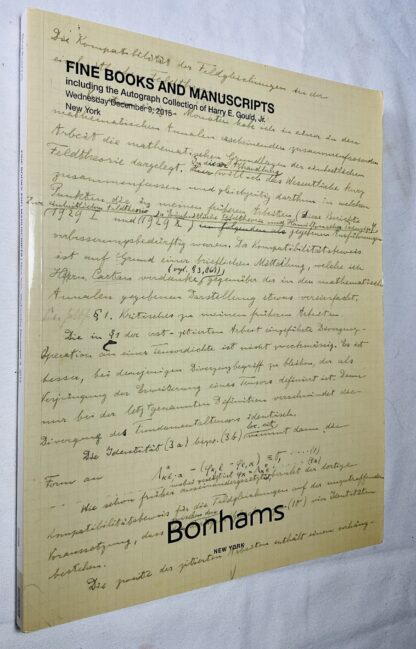 Die Kompatibilität der Feldgleichungen in der
FINE BOOKS AND MANUSCRIPTS
including the Autograph Collection of Harry E. Gould, Jr.
Wednesday December 9, 2015
New York
mathematischen Annalen erscheinenden zusammenfassenden
Arbeit die mathematischen Grundlagen der einheitlichen
Feldtheorie dargelegt. will ich das Wesentliche kurz
zusammenfassen und gleichzeitig darthun, in welchen
Punkten die in meinen früheren Arbeiten (diese Berichte
(1929 I und 1929 II) gegebenen Ausführungen
verbesserungsbedürftig waren. Die Kompatibilitätsbeweis
ist auf Grund einer brieflichen Mitteilung, welche ich
(vgl. §3,
Herrn Cartan verdanke, gegenüber der in den mathematischen
Annalen gegebenen Darstellung etwas vereinfacht.
§ 1. Kritisches zu meinen früheren Arbeiten.
Die in §1 der zuletzt zitierten Arbeit eingeführte Divergenz-
Operation an einer Tensordichte ist nicht zweckmässig. Es ist
besser, bei demjenigen Divergenzbegriff zu bleiben, der als
Verjüngung der Erweiterung eines Tensors definiert ist. Denn
nur bei der letztgenannten Definition verschwindet die
Divergenz des Fundamentaltensors identisch.
loc. cit.
Die Identität (3a) bezw. (3b) nimmt dann die
Form an
wie schon früher auseinandergesetzt
Kompatibilitätsbeweis für die Feldgleichungen auf der unzutreffenden
Voraussetzung, dass vier Identitäten
bestehen.
Bonhams
NEW YORK
Die zweite der zitierten Arbeiten enthält einen